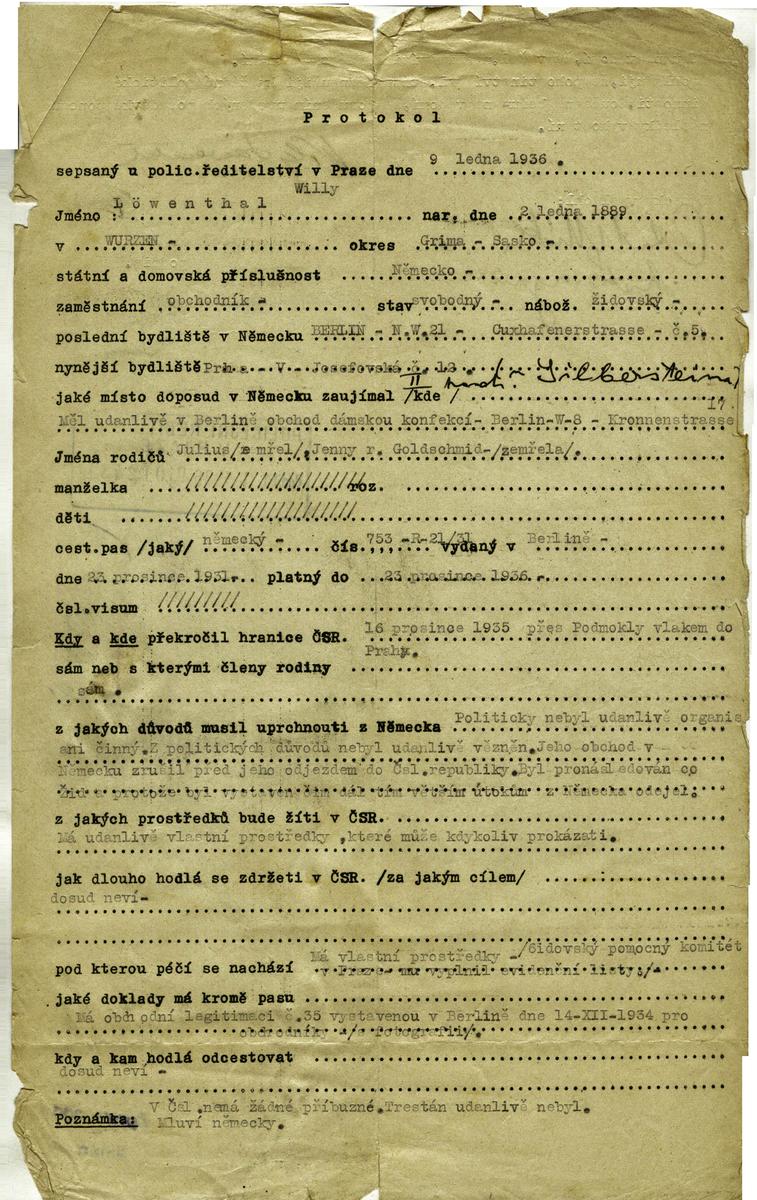 Protokol
sepsaný u polic.ředitelství v Praze dne 9 ledna 1936.
Willy
Jméno : Löwenthal nar. dne 2 ledna 1889
v WURZEN - okres Grima - Sasko -
státní a domovská příslušnost Německo -
zaměstnání obchodník - stav svobodný - nábož. židovský -
poslední bydliště v Německu BERLIN - N.W.21 - Cuxhafenerstrasse - č.5.
nynější bydliště Prha - V - Josefovská č. 12.
II
jaké místo doposud v Německu zaujímal /kde/
17.
Měl udanlivě v Berlině obchod dámskou konfekcí- Berlin-W-8 - Kronnenstrasse
Jména rodičů Julius/zemřel/,Jenny r. Goldschmid-/zemřela/.
manželka //////////////////// roz.
děti ///////////////////
cest.pas /jaký/ německý - čís. 753 -R-21/31 vydaný v Berlině -
dne 23 prosince 1931. platný do 23 prosince 1936 -
čsl.visum /////////
Kdy a kde překročil hranice ČSR. 16 prosince 1935 přes Podmokly vlakem do
Prahy.
sám neb s kterými členy rodiny
sám .
z jakých důvodů musil uprchnouti z Německa Politicky nebyl udanlivě organis
ani činný.Z politických důvodů nebyl udanlivě vězněn.Jeho obchod v
Německu zrušil před jeho odjezdem do Čsl.republiky.Byl pronásledován co
žid a protože byl vystaven čím dál tím větším útokům z Německa odejel.
z jakých prostředků bude žíti v ČSR.
Má udanlivě vlastní prostředky ,které může kdykoliv prokázati.
jak dlouho hodlá se zdržeti v ČSR. /za jakým cílem/
dosud neví-
Má vlastní prostředky -/Gidovský pomocný komitét
pod kterou péčí se nachází v Praze- mu vyplnil evidenční listy./-
jaké doklady má kromě pasu
Má obch odní legitimaci č.35 vystavenou v Berlině dne 14-XII-1934 pro
obchodníky -/s fotografií/.
kdy a kam hodlá odcestovat
dosud neví -
Poznámka: V Čsl .nemá žádné příbuzné.Trestán udanlivě nebyl.
Mluví německy.